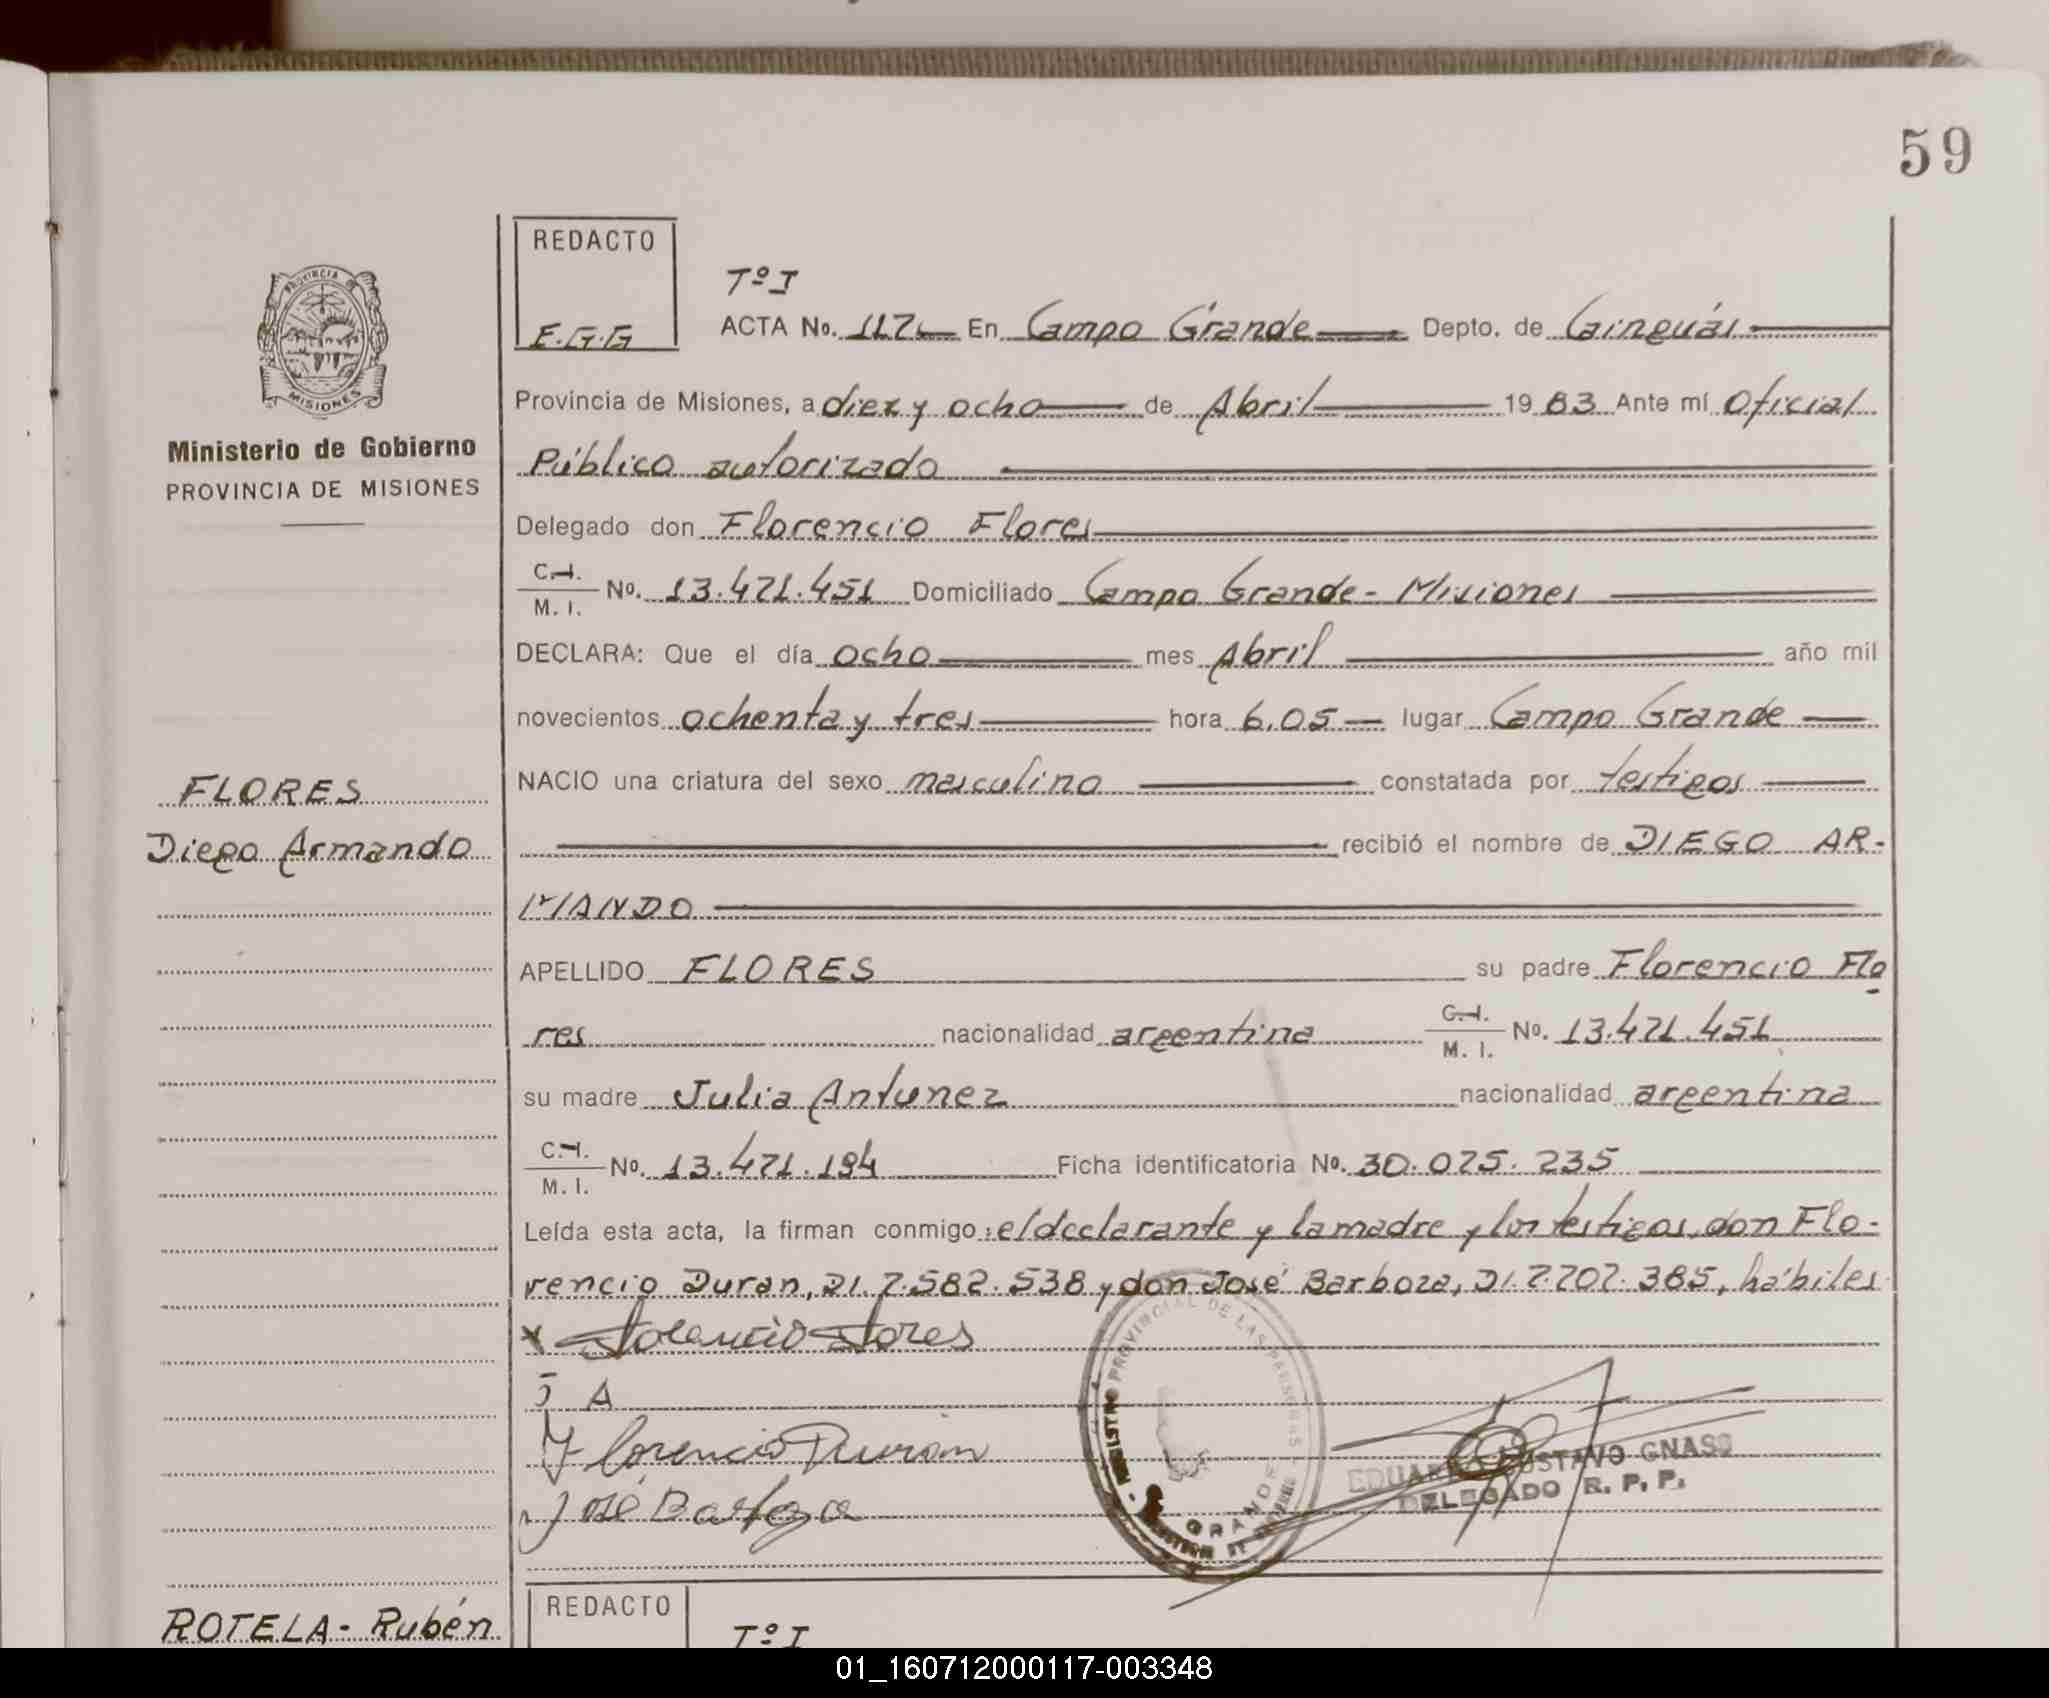 59
REDACTO
E.G.G
Tº I
PROVINCIA DE
MISIONES
Ministerio de Gobierno
PROVINCIA DE MISIONES
ACTA No. En Campo Grande Depto. de Cainguás
Provincia de Misiones, a diez y ocho de Abril 1983 Ante mí Oficial
Público autorizado
Delegado don Florencio Flores
C.I. M. I. No. 13.471.451 Domiciliado Campo Grande - Misiones
DECLARA: Que el día ocho mes Abril año mil
novecientos ochenta y tres hora 6,05 lugar Campo Grande
NACIO una criatura del sexo masculino constatada por testigos
FLORES
Diego Armando
recibió el nombre de DIEGO AR-
MANDO
APELLIDO FLORES su padre Florencio Flo
res nacionalidad argentina C.I. M. I. No. 13.471.451
su madre Julia Antunez nacionalidad argentina
C.I. M. I. No. 13.471.194 Ficha identificatoria No. 30.075.235
Leída esta acta, la firman conmigo: el declarante y la madre y los testigos, don Flo-
rencio Duran, DI. 7.582.538 y don José Barboza, DI. 7.707.385, hábiles
x Florencio Flores
J A
Florencio Duran
José Barboza
REGISTRO PROVINCIAL DE LAS PERSONAS
GRANDE
EDUARDO GUSTAVO GNASO
DELEGADO R. P. P.
ROTELA - Rubén
REDACTO
Tº I
01_160712000117-003348